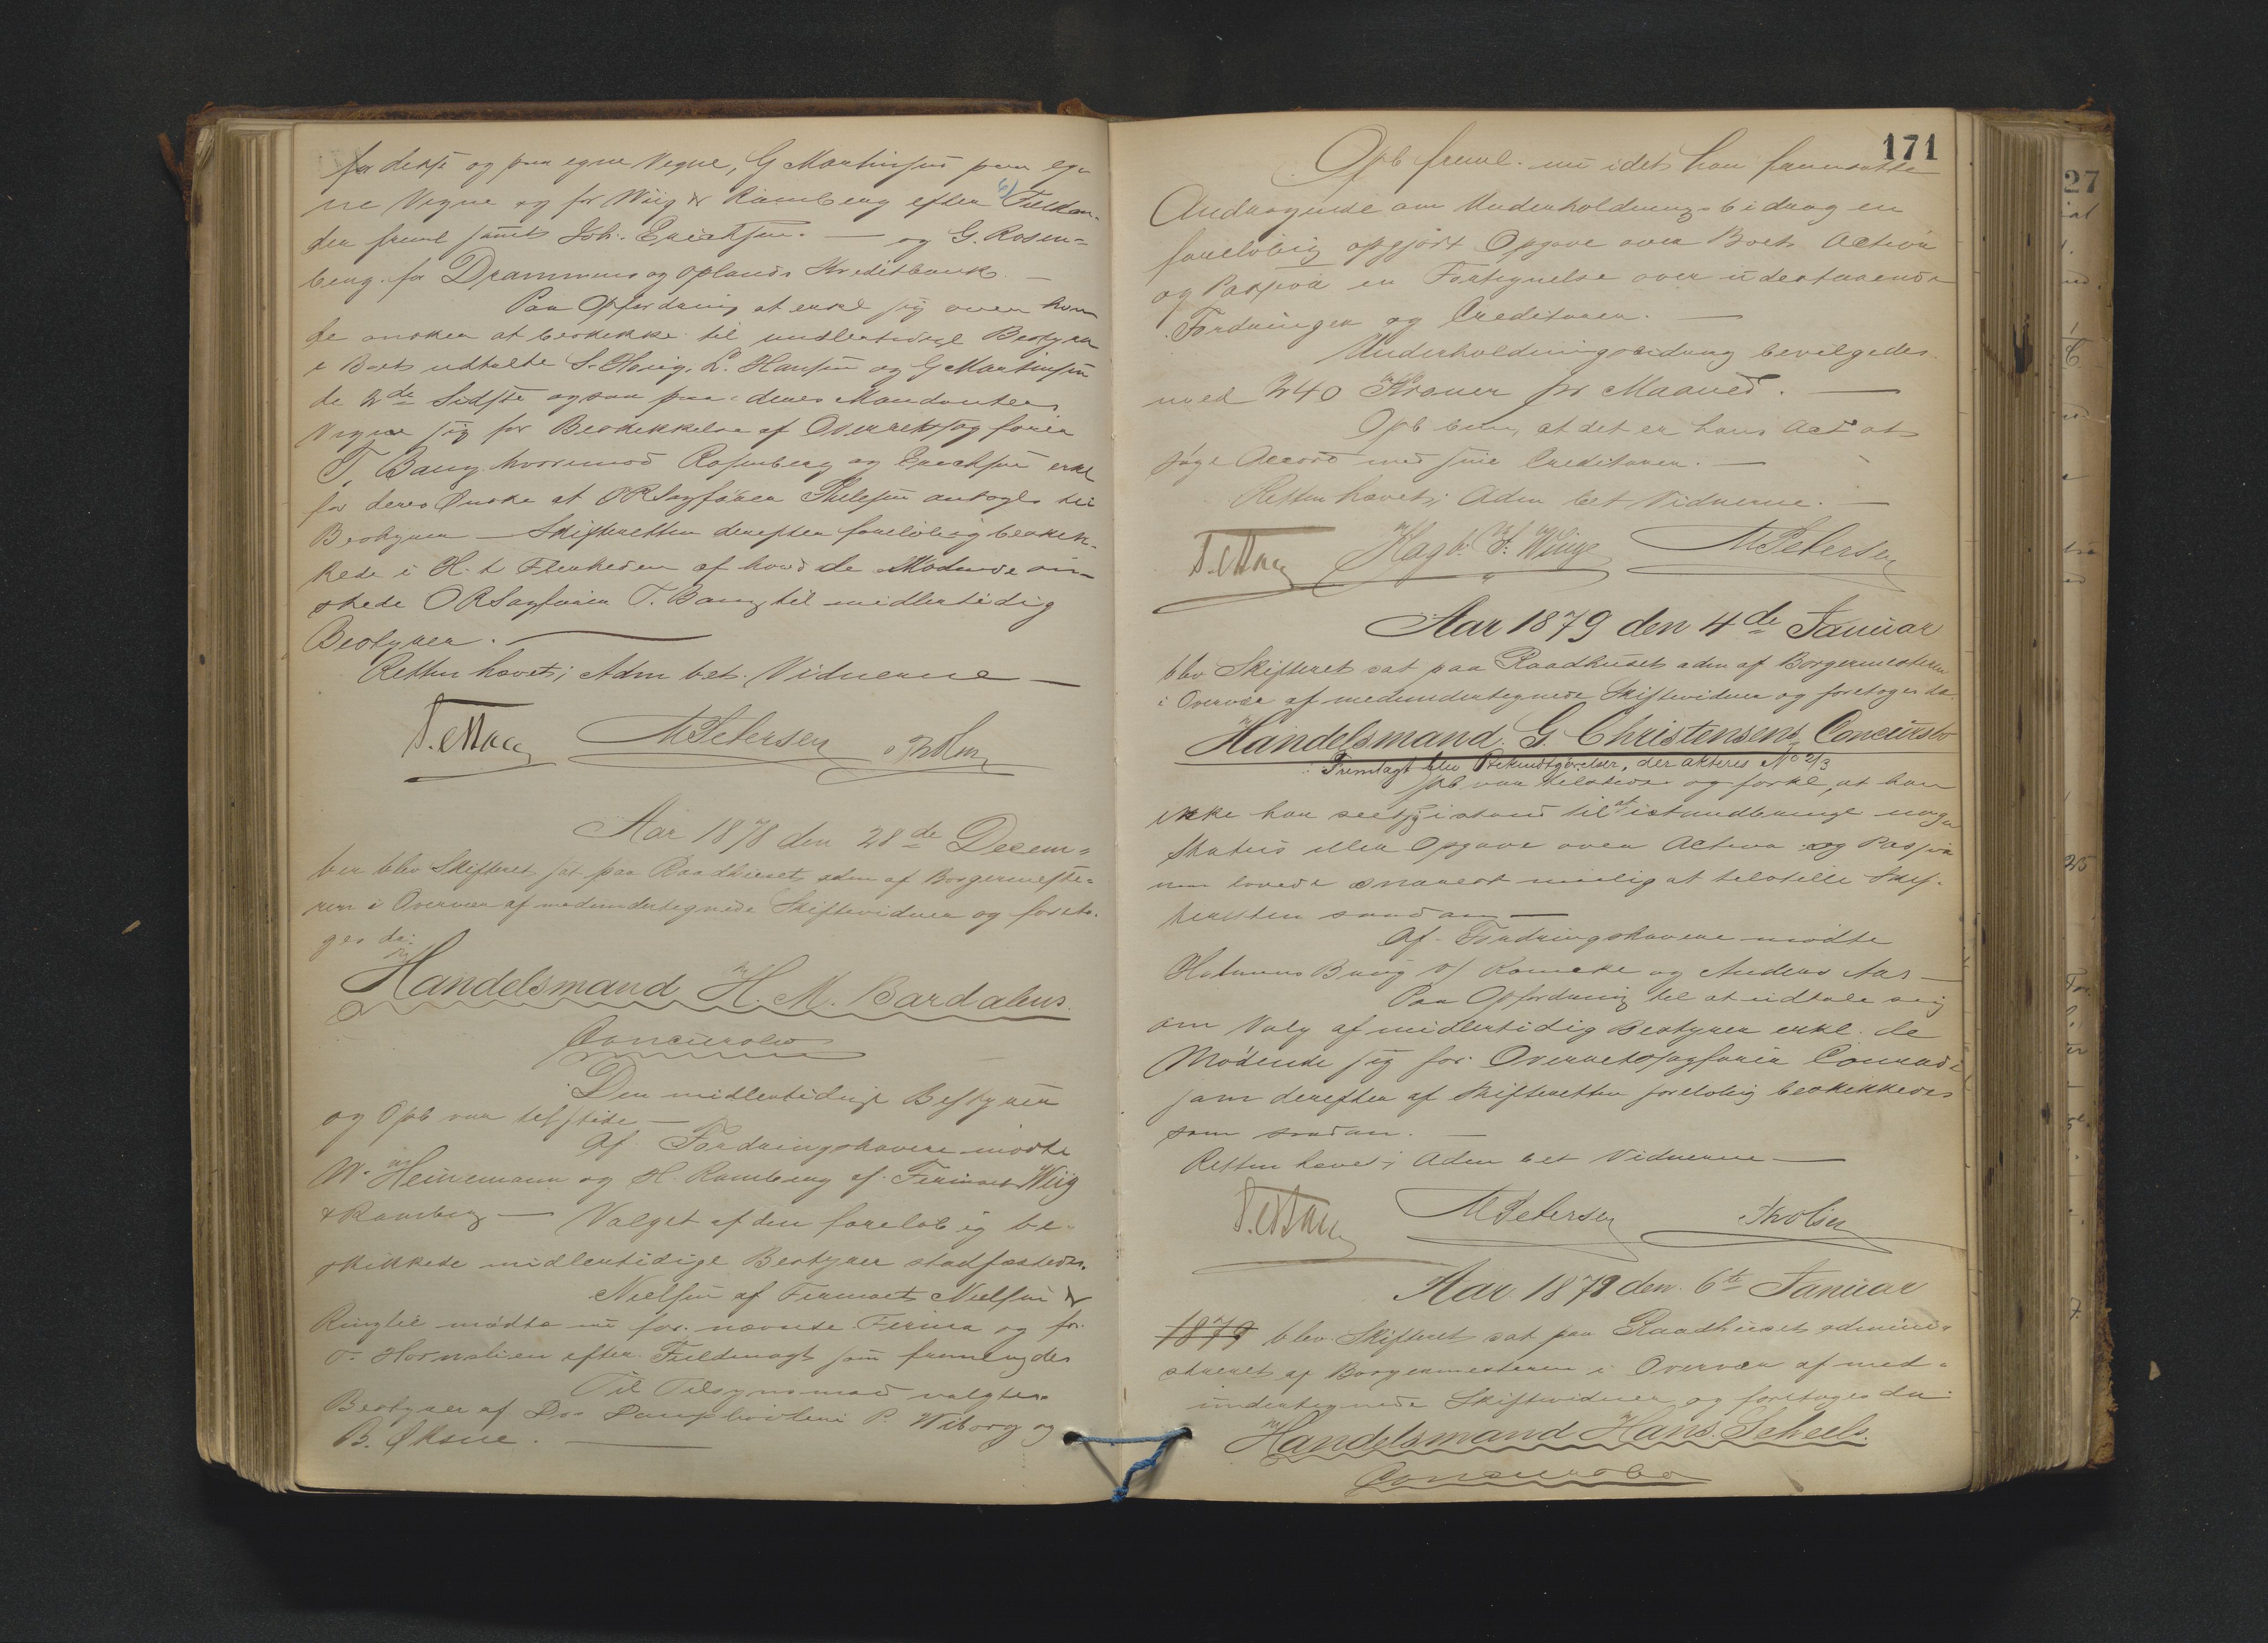 for dette og paa egne Vegne, G Martinsen paa eg-
ne Vegne og for Wiig & Ramberg efter Fuldm.
der freml samt Joh. Erichsen. — og G. Rosen-
berg for Drammens og Oplands Kreditbank. —
Paa Opfordring at erkl sig over hvem
de ønsker at beskikke til midlertidige Bestyrer
i Boet udtalte S. Høeg, L. Hansen og G Martinsen
de 2de Sidste ogsaa paa deres Mandanters
Vegne sig for Beskikkelse af Overretssagfører
T. Bang hvorimod Rosenberg og Erichsen erkl
for deres Ønske at ORSagfører Thelesen antoges til
Bestyrer — Skifteretten derefter foreløbig beskik-
kede i H. t Fleerheden af hvad de Mødende øn-
skede ORSagfører T. Bang til midlertidig
Bestyrer. —
Retten hævet; Adm bet. Vidnerne —
M Petersen
Aar 1878 den 28de Decem-
ber blev Skifteret sat paa Raadhuset adm af Borgermeste-
ren i Overvær af medundertegnede Skiftevidner og foreto-
ges da:
Handelsmand H. M. Bardalens
Concursbo
Den midlertidige Bestyrer
og Opb var tilstede —
Af Fordringshavere mødte
W. Heinemann og H. Ramberg af Firmaet Wiig
& Ramberg — Valget af den foreløbig be-
skikkede midlertidige Bestyrer stadfæstedes.
Nielsen af Firmaet Nielsen &
Ringlie mødte nu for nævnte Firma og for
O. Hornslien efter Fuldmagt som fremlagdes
Til Tilsynsmænd valgtes
Bestyrer af P. Wiborg og
B. Øksne. —
171
Opb freml. nu idet han fremsatte
Andragende om Underholdningsbidrag en
foreløbig opgjort Opgave over Boets Activa
og Passiva en Fortegnelse over udestaaende
Fordringer og Creditorer. —
Underholdningsbidrag bevilgedes
med 240 Kroner pr Maaned. —
Opb bem, at det er hans Act at
søge Accord med sine Creditorer. —
Retten hævet; Adm bet Vidnerne. —
Hagb. F. Winge M Petersen
Aar 1879 den 4de Januar
blev Skifteret sat paa Raadhuset adm af Borgermesteren
i Overvær af medundertegnede Skiftevidner og foretoges da
Handelsmand G. Christensens Concursbo
Fremlagt blev Bekundtgjørelser, der akteres No 2/3
Opb var tilstede og forkl, at han
ikke har seet sig istand til at istandbringe nogen
Status eller Opgave over Activa og Passiva
men lovede snarest muelig at tilstille Skif-
teretten saadan —
Af Fordringshavere mødte
Halmans Bang o/ Romcke og Anders Aas —
Paa Opfordring til at udtale sig
om Valg af midlertidig Bestyrer erkl. de
Mødende sig for Overretssagfører Conradi
som derefter af Skifteretten foreløbig beskikkedes
som saadan. —
Retten hævet; Adm bet Vidnerne —
M Petersen
Aar 1879 den 6te Januar
1879 blev Skifteret sat paa Raadhuset admini-
streret af Borgermesteren i Overvær af med-
undertegnede Skiftevidner og foretoges da:
Handelsmand Hans Scheels
Concursbo
27